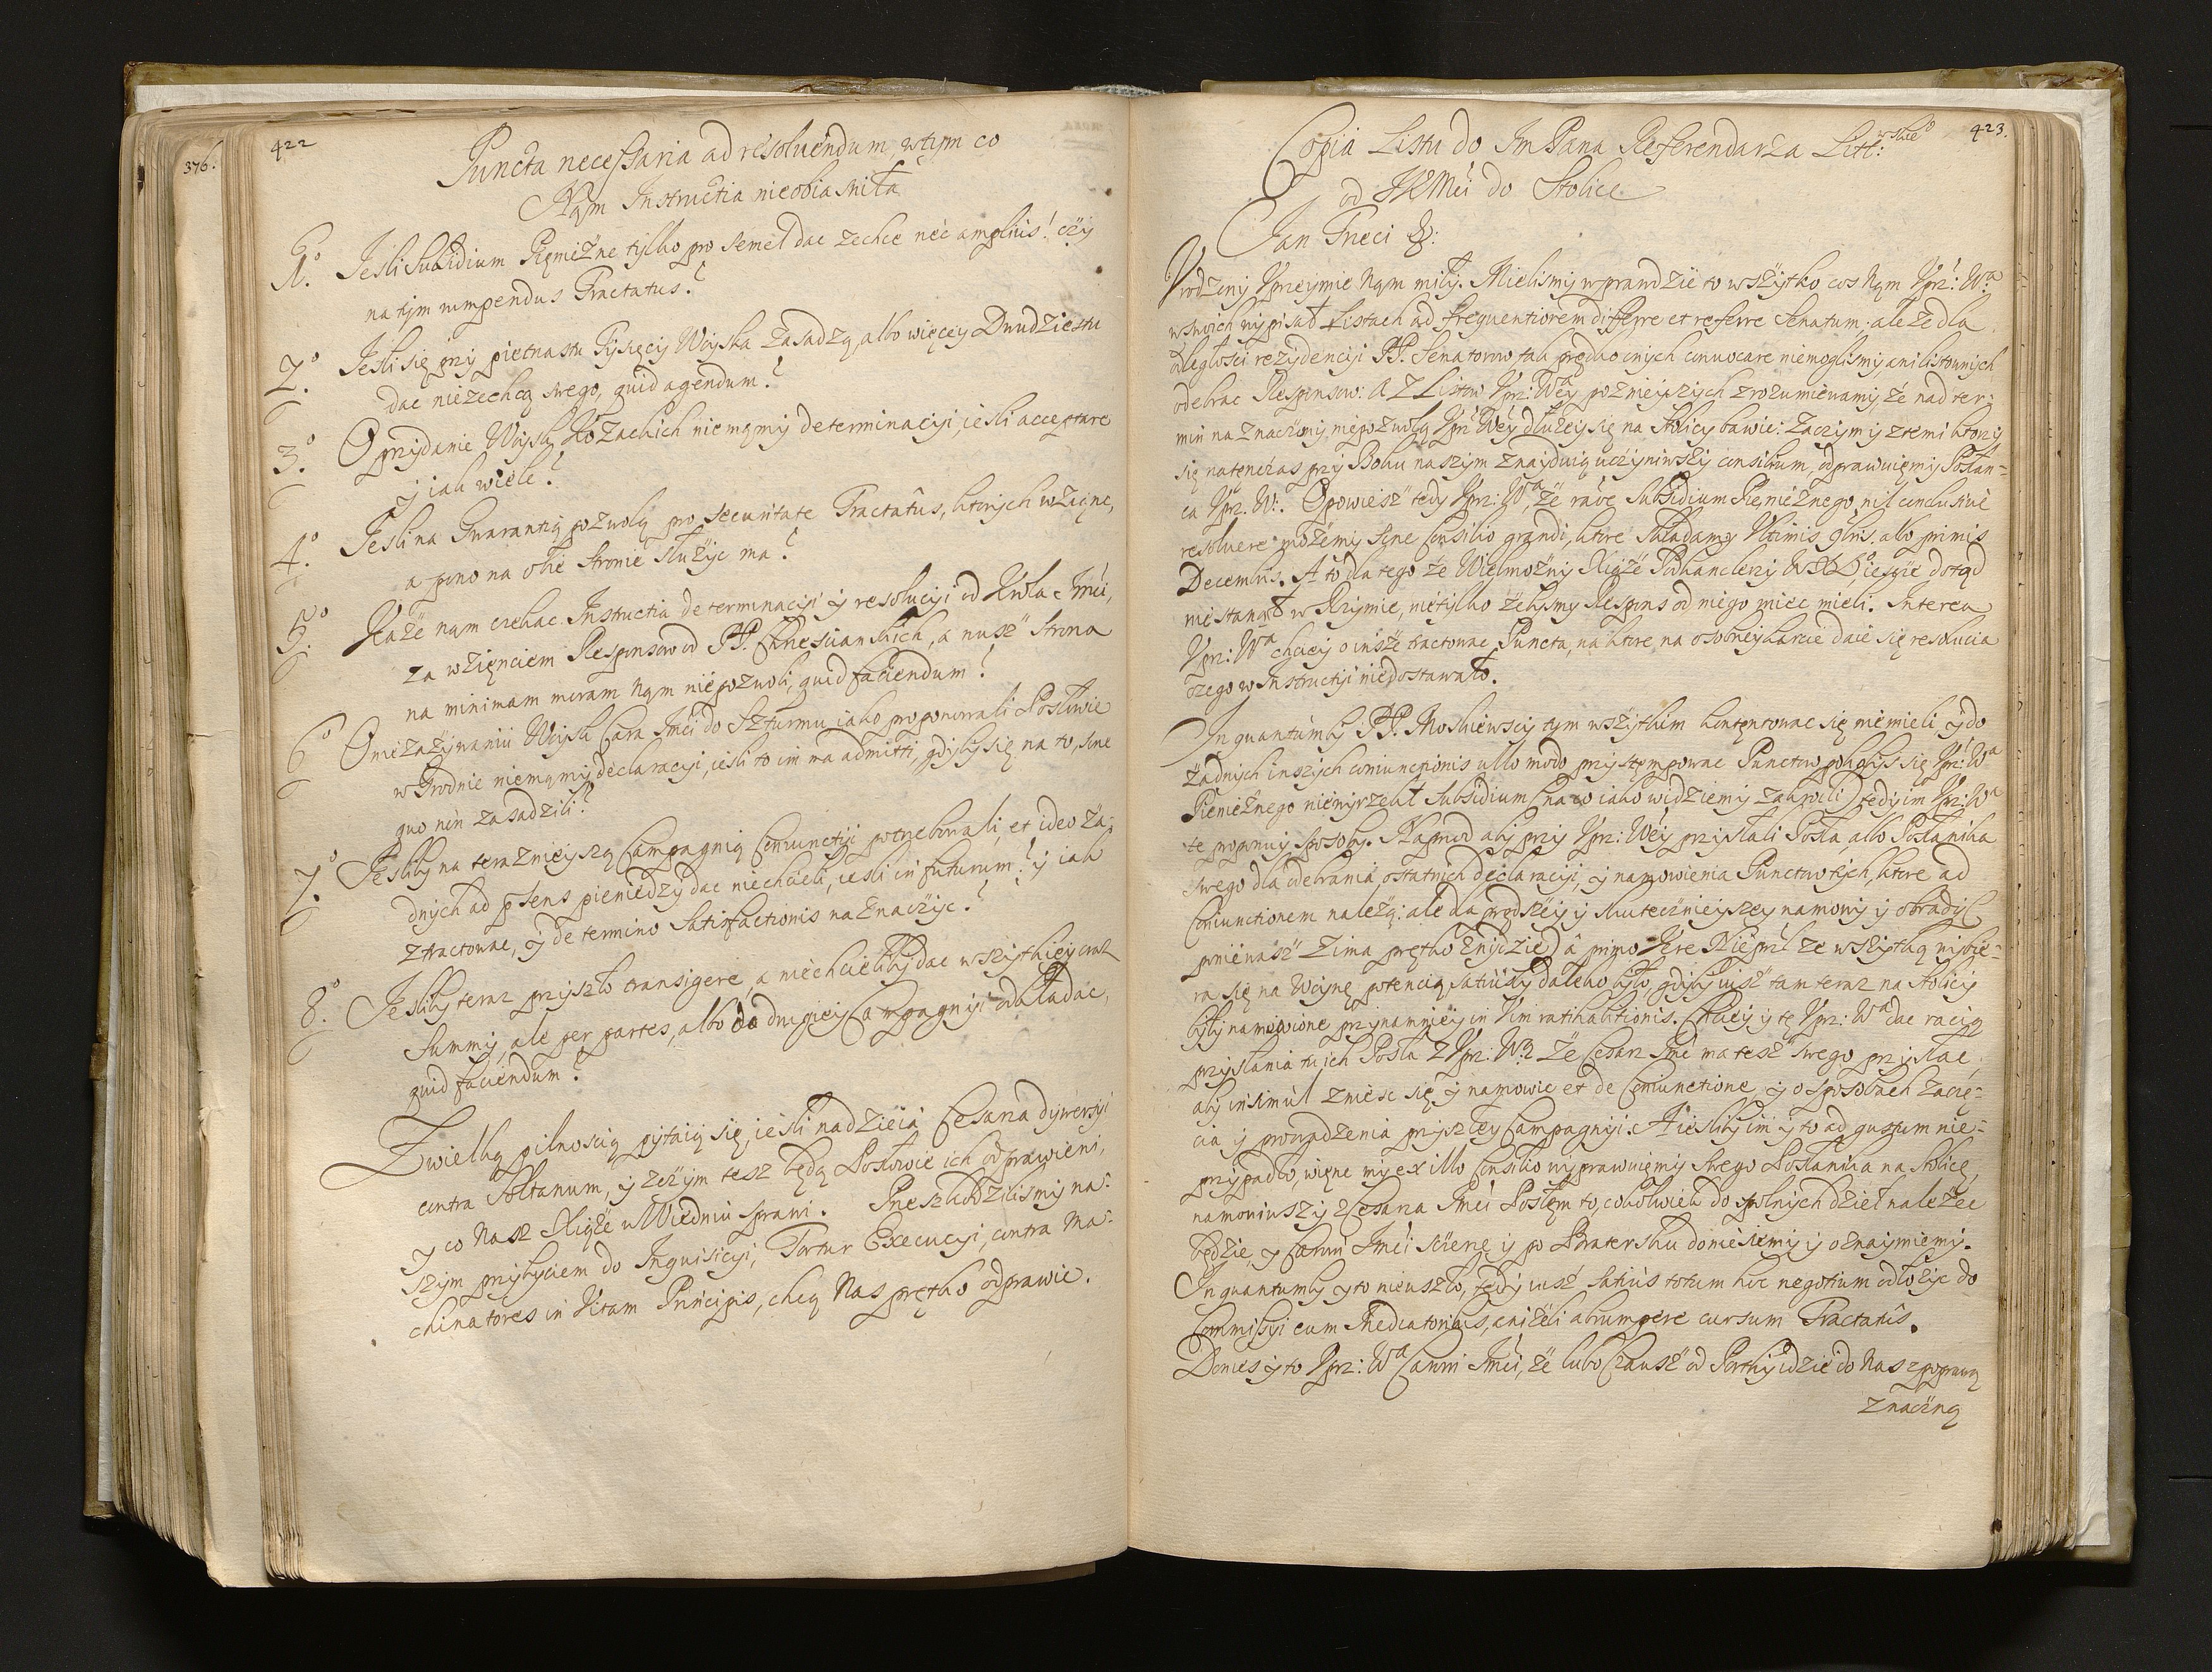 376.
422
Puncta necessaria ad resoluendum, wtym co
Nąm Instructia nieobiasniła
1.º Jesli Subsidium Pięnięzne tylko pro semel dac zechce nec amplius! czy
na tym rumpendus Tractatus?
2.º Jesli się przy pietnastu Tysięcy Woyska zasadzą, albo więcey Dwudziestu
dac niezechcą swego, quid agendum?
3.º O przydanie Woysk Kozackich niemąmy determinacyi, iesli acceptare
y iak wiele?
4.º Jesli na Guarantią pozwolą pro securitate Tractatûs, ktorych wzaięne,
a pono na obie stronie służyc ma?
5.º Każe nąm czekac Instructia determinacyi y resolucyi od Krola Jmci,
za wzięnciem Responsow od PP. Chrescianskich, a nusz strona
na minimam moram nąm niepozwoli, quid faciendum?
6º O niezażywaniu Woysk Cara Jmci do Szturmu iako proponowali Posłowie
w Grodnie niemąmy declaracyi, iesli to im ma admitti, gdyby się na to, sine
quo non zasadzili?
7.º Jesliby na teraznieyszą Campagnią Coniunctyi potrebowali, et ideo ża-
dnych ad psens pieniedzy dac niechcieli, iesli in futurum? y iak
ztractowac, y de termino satisfactionis naznaczyc?
8.º Jesliby teraz przyszło transigere, a niechcieliby dac wszytkiey oraz
Summy, ale per partes, albo do drugiey Campagnyi odkładac,
quid faciendum?
Zwielką pilnoscią pytaią się, iesli nadzieia Cesarza dywersyi
contra Soltanum, y zczym tesz będą Posłowie ich odprawieni,
y co Nasz Xiąże w Wiedniu sprawi. Przeszkodzilismy na-
szym przybyciem do Inquisicyi, Tortur Execucyi, contra Ma-
chinatores in Vitam Principis, chcą Nas prętko odprawic.
423.
Copia Listu do Jm Pana Referendarza Litt:
od JKMci do Stolice
Jan Trzeci &:
Vrodzony Vprzeymie Nąm miły. Mielismy wprawdzie to wszytko cos Nąm Vprz: Wª
wswoich wypisał Listach ad frequentiorem differre et referre Senatum, ale że dla
odległosci rezydencyi PP. Senatorow tak prędko onych conuocare niemoglismy ani listownych
odebrac Responsow: a z Listow Vprz: Wey poznieyszych zrozumiewamy, że nad ter-
min naznaczony niepozwolą Vprz Wey dłużey się na Stolicy bawic: Zaczym y ztemi ktorzy
się natenczas przy Boku naszym znayduią uczyniwszy consilium, odprawuięmy Posłan-
ca Vprz: W: Opowiesz tedy Vprz: Wª, że raoe Subsidium Pięnięznego nil conclusiue
resoluere możemy sine Consilio grandi, ktore składamy Vltimis 9bris. albo primis
Decembris. A to dla tego że Wielmożny Xiąże Podkanclerzy WXLº, ieszcze dotąd
niestanął w Rzymie, nietylko żebysmy Respons od niego miec mieli. Interea
Vprz: Wª chciey o insze tractowac Puncta, na ktore, na osobney karcie daie się resolucia
czego w Instructyi niedostawało.
In quantumby PP. Moskiewscy tym wszytkim kontentowac się niemieli, y do
żadnych inszych coniunctionis ullo modo przystępowac Punctow, pokąbys się Vprz: Wª
Pieniężnego niewyrzekł Subsidium (na co iako widziemy zakroili) tedy im Vprz: Wª
te proponuy sposoby. Naprzod aby przy Vprz: Wey przysłali Posła albo Posłanika
swego dla odebrania ostatnich declaracyi, y namowienia Punctow tych, ktore ad
Coniunctionem należą: ale dla prędszey y skutecznieyszey namowy y obrady (
ponieważ Zima prętko znijdzie) a pimo Vere Nieprzl ze wszytką wybie-
ra się na Woynę potencią satiusby daleko było, gdyby iusz tam teraz na Stolicy
były namowione przynamniey in Vim ratihabitionis. Chciey y tę Vprz: Wª dac racią
przysłania tu ich Posła z Vprz: W: że Cesarz Jmc ma tesz swego przysłac,
aby insimul zniesc się y namowic et de Coniunctione y o sposobach zacię-
cia y prowadzenia przyszłey Campagnyi. A iesliby im y to ad gustum nie-
przypadło, więnc my ex illo Consilio wyprawuięmy swego Posłanika na Stolicę,
namowiwszy z Cesarza Jmci Posłem to, cokolwiek do spolnych dzieł należec
będzie, y Carowi Jmci sczerze y po Bratersku doniesiemy y oznaymiemy.
In quantumby y to nieuszło, tedy iusz satius totum hoc negotium odłożyc do
Commissyi cum Mediatoribus, aniżeli abrumpere cursum Tractatûs.
Donies y to Vprz: Wª Carowi Jmci, że lubo Czausz od Porty idzie do Nas zpoprawą
znaczną